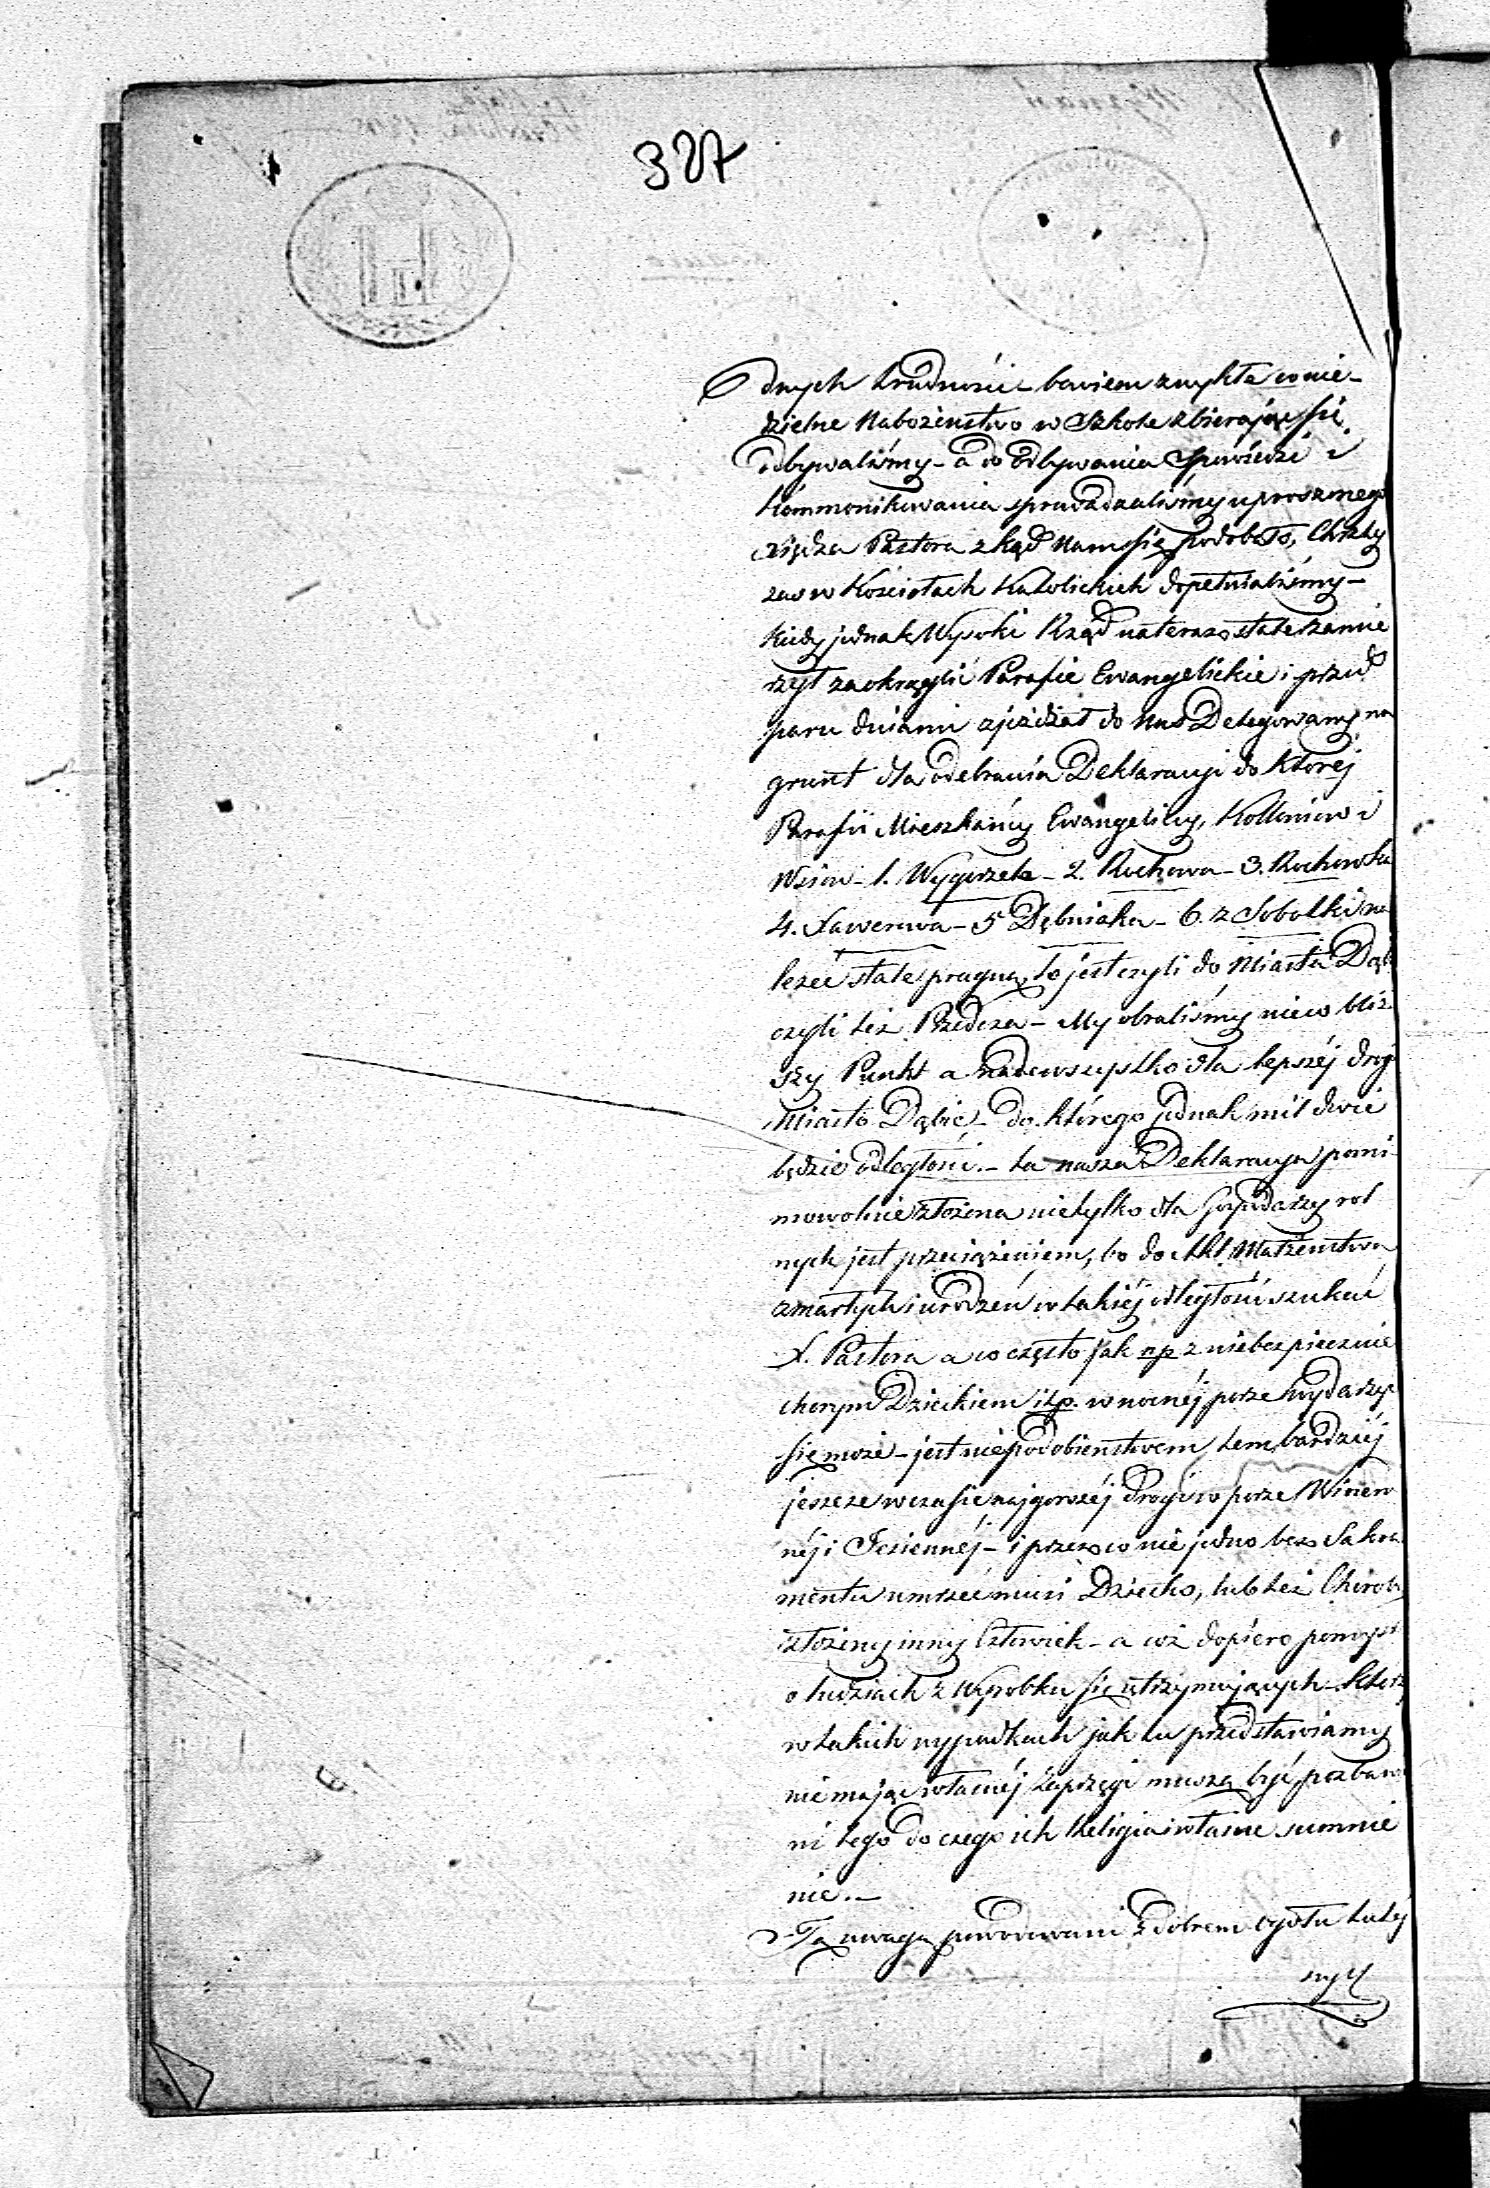 327
dnych trudności – bowiem zwykłe co nie-
dzielne Nabożeństwo w Szkole zbierając się
odbywaliśmy – a do odbywania Spowiedzi i
kommonikowania sprowadzaliśmy uproszonego
Xiędza Pastora zkąd nam się podobało, Chrzty
zaś w Kościołach Katolickich dopełnialiśmy –
Kiedy jednak Wysoki Rząd na teraz stale zamie
rzył zaokrąglić Parafie Ewangelickie i przed
paru dniami zjeżdżał do nas Delegowany na
grunt dla odebrania Deklaracyi do której
Parafii Mieszkańcy Ewangelicy, Kolloniów i
Wsiów – 1. Wygorzele – 2. Rochowa – 3. Rochowka
4. Xawerowa – 5 Dębniaka – 6. z Sobolki na
leżeć stale pragną, to jest czyli do Miasta Dąb
czyli też Przedcza – My obraliśmy nieco bliż
szy Punkt a nadewszystko dla lepszéj drog
Miasto Dąbie – do którego jednak mil dwie
będzie odległości. – ta nasza Deklaracya pomi
mowolnie złożona nietylko dla Gospodarzy rol
nych jest przeciążeniem, bo do Akt Małżeństwa
zmarłych i urodzeń w takiéj odległości szukać
X. Pastora a co często jak np z niebezpiecznie
chorym Dzieckiem itp. w nocnéj porze wydarzyć
się może – jest niepodobieństwem, tem bardziéj
jeszcze w czasie najgorszéj drogi w porze Wiosen
néj i Jesiennéj – i przez co nie jedno bez Sakra
mentu umrzeć musi Dziecko, lub też Chorobą
złożony inny Człowiek – a cóż dopiero pomysl
o ludziach z Wyrobku się utrzymujących – którz
w takich wypadkach jak tu przedstawiamy
nie mając własnéj zaprzęgi muszą być pozbawi
ni tego do czego ich Religia i własne summie
nie. –
Tą uwagą powodowani z dobrem ogółu tutéj